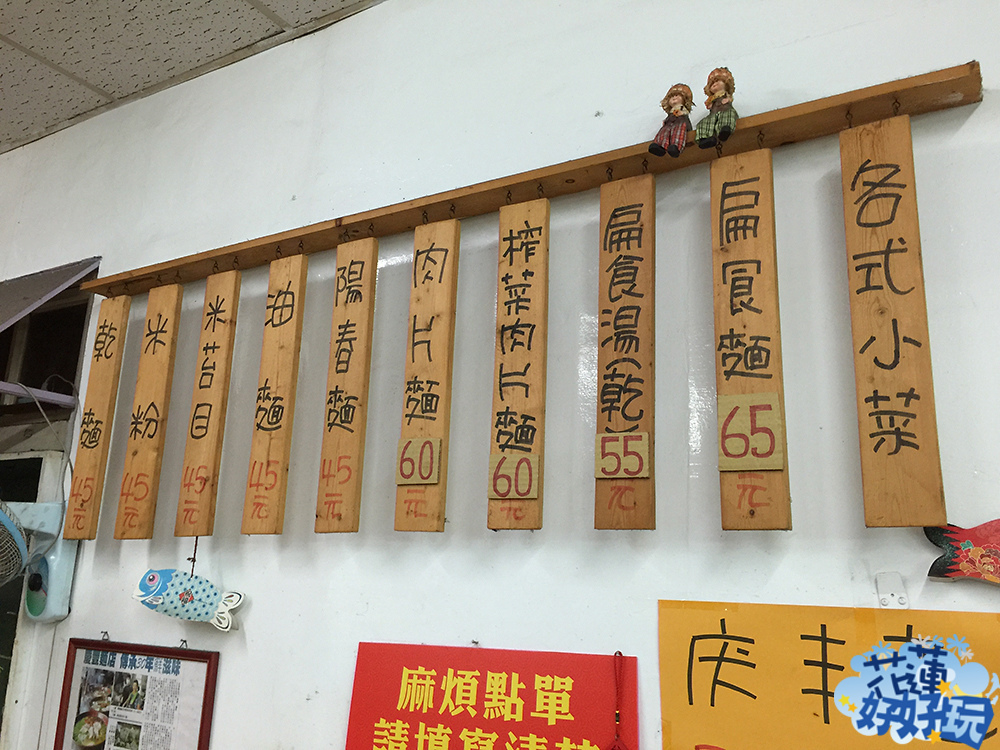 各式小菜
扁食麵 65元
扁食湯(乾) 55元
榨菜肉片麵 60元
肉片麵 60元
陽春麵 45元
油麵 45元
米苔目 45元
米粉 45元
乾麵 45元
麵店 傳承30年鮮滋味
麻煩點單
請填寫清
花蓮
好好玩